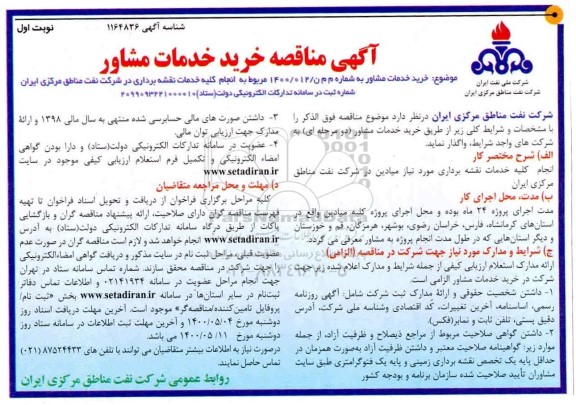 شناسه آگهی ۱۱۶۴۸۳۶
نوبت اول
آگهی مناقصه خرید خدمات مشاور
موضوع: خرید خدمات مشاور به شماره م م ن/۱۴۰۰/۰۱۲ مربوط به انجام کلیه خدمات نقشه برداری در شرکت نفت مناطق مرکزی ایران
شماره ثبت در سامانه تدارکات الکترونیکی دولت(ستاد)
شرکت ملی نفت ایران
شرکت نفت مناطق مرکزی ایران
شرکت نفت مناطق مرکزی ایران درنظر دارد موضوع مناقصه فوق الذکر را
با مشخصات و شرایط کلی زیر از طریق خرید خدمات مشاور (دو مرحله ای) به
شرکت های واجد شرایط، واگذار نماید.
الف) شرح مختصر کار
انجام کلیه خدمات نقشه برداری مورد نیاز میادین در شرکت نفت مناطق
مرکزی ایران
ب) مدت، محل اجرای کار
مدت اجرای پروژه ۲۴ ماه بوده و محل اجرای پروژه کلیه میادین واقع در
استان‌های کرمانشاه، فارس، خراسان رضوی، بوشهر، هرمزگان، قم و خوزستان
و دیگر استان‌هایی که در طول مدت انجام پروژه به مشاور معرفی می گردد.
ج) شرایط و مدارک مورد نیاز جهت شرکت در مناقصه (الزامی)
ارائه مدارک استعلام ارزیابی کیفی از جمله شرایط و مدارک اعلام شده زیر جهت
شرکت در خرید خدمات مشاور الزامی است.
۱- داشتن شخصیت حقوقی و ارائه مدارک ثبت شرکت شامل: آگهی روزنامه
رسمی، اساسنامه، آخرین تغییرات، کد اقتصادی وشناسه ملی شرکت، آدرس
دقیق پستی، تلفن ثابت و نمابر(فکس).
۲- داشتن گواهی صلاحیت مربوط از مراجع ذیصلاح و ظرفیت آزاد، از جمله
موارد زیر: گواهینامه صلاحیت معتبر و داشتن ظرفیت آزاد به‌صورت همزمان در
حداقل پایه یک تخصص نقشه برداری زمینی و پایه یک فتوگرامتری طبق سایت
مشاوران تأیید صلاحیت شده سازمان برنامه و بودجه کشور
۳- داشتن صورت های مالی حسابرسی شده منتهی به سال مالی ۱۳۹۸ و ارائۀ
مدارک جهت ارزیابی توان مالی.
۴- عضویت در سامانه تدارکات الکترونیکی دولت(ستاد) و دارا بودن گواهی
امضاء الکترونیکی و تکمیل فرم استعلام ارزیابی کیفی موجود در سایت
www.setadiran.ir
د) مهلت و محل مراجعه متقاضیان
کلیه مراحل برگزاری فراخوان از دریافت و تحویل اسناد فراخوان تا تهیه
فهرست مناقصه گران دارای صلاحیت، ارائه پیشنهاد مناقصه گران و بازگشایی
پاکات از طریق درگاه سامانه تدارکات الکترونیکی دولت(ستاد) به آدرس
www.setadiran.ir انجام خواهد شد و لازم است مناقصه گران در صورت عدم
عضویت قبلی، مراحل ثبت نام در سایت مذکور و دریافت گواهی امضاءالکترونیکی
را جهت شرکت در مناقصه محقق سازند. شماره تماس سامانه ستاد در تهران
جهت انجام مراحل عضویت در سامانه ۰۲۱۴۱۹۳۴ و اطلاعات تماس دفاتر
ثبت‌نام در سایر استان‌ها در سامانه www.setadiran.ir بخش «ثبت نام/
پروفایل تامین‌کننده/مناقصه‌گر» موجود است. آخرین مهلت دریافت اسناد روز
دوشنبه مورخ ۱۴۰۰/۰۵/۰۴ و آخرین مهلت ثبت اطلاعات در سامانه ستاد روز
دوشنبه مورخ ۱۴۰۰/۰۵/۱۱ می باشد.
درصورت نیاز به اطلاعات بیشتر متقاضیان می توانند با تلفن های ۸۷۵۲۴۴۳۳ (۰۲۱)
تماس حاصل نمایند.
روابط عمومی شرکت نفت مناطق مرکزی ایران